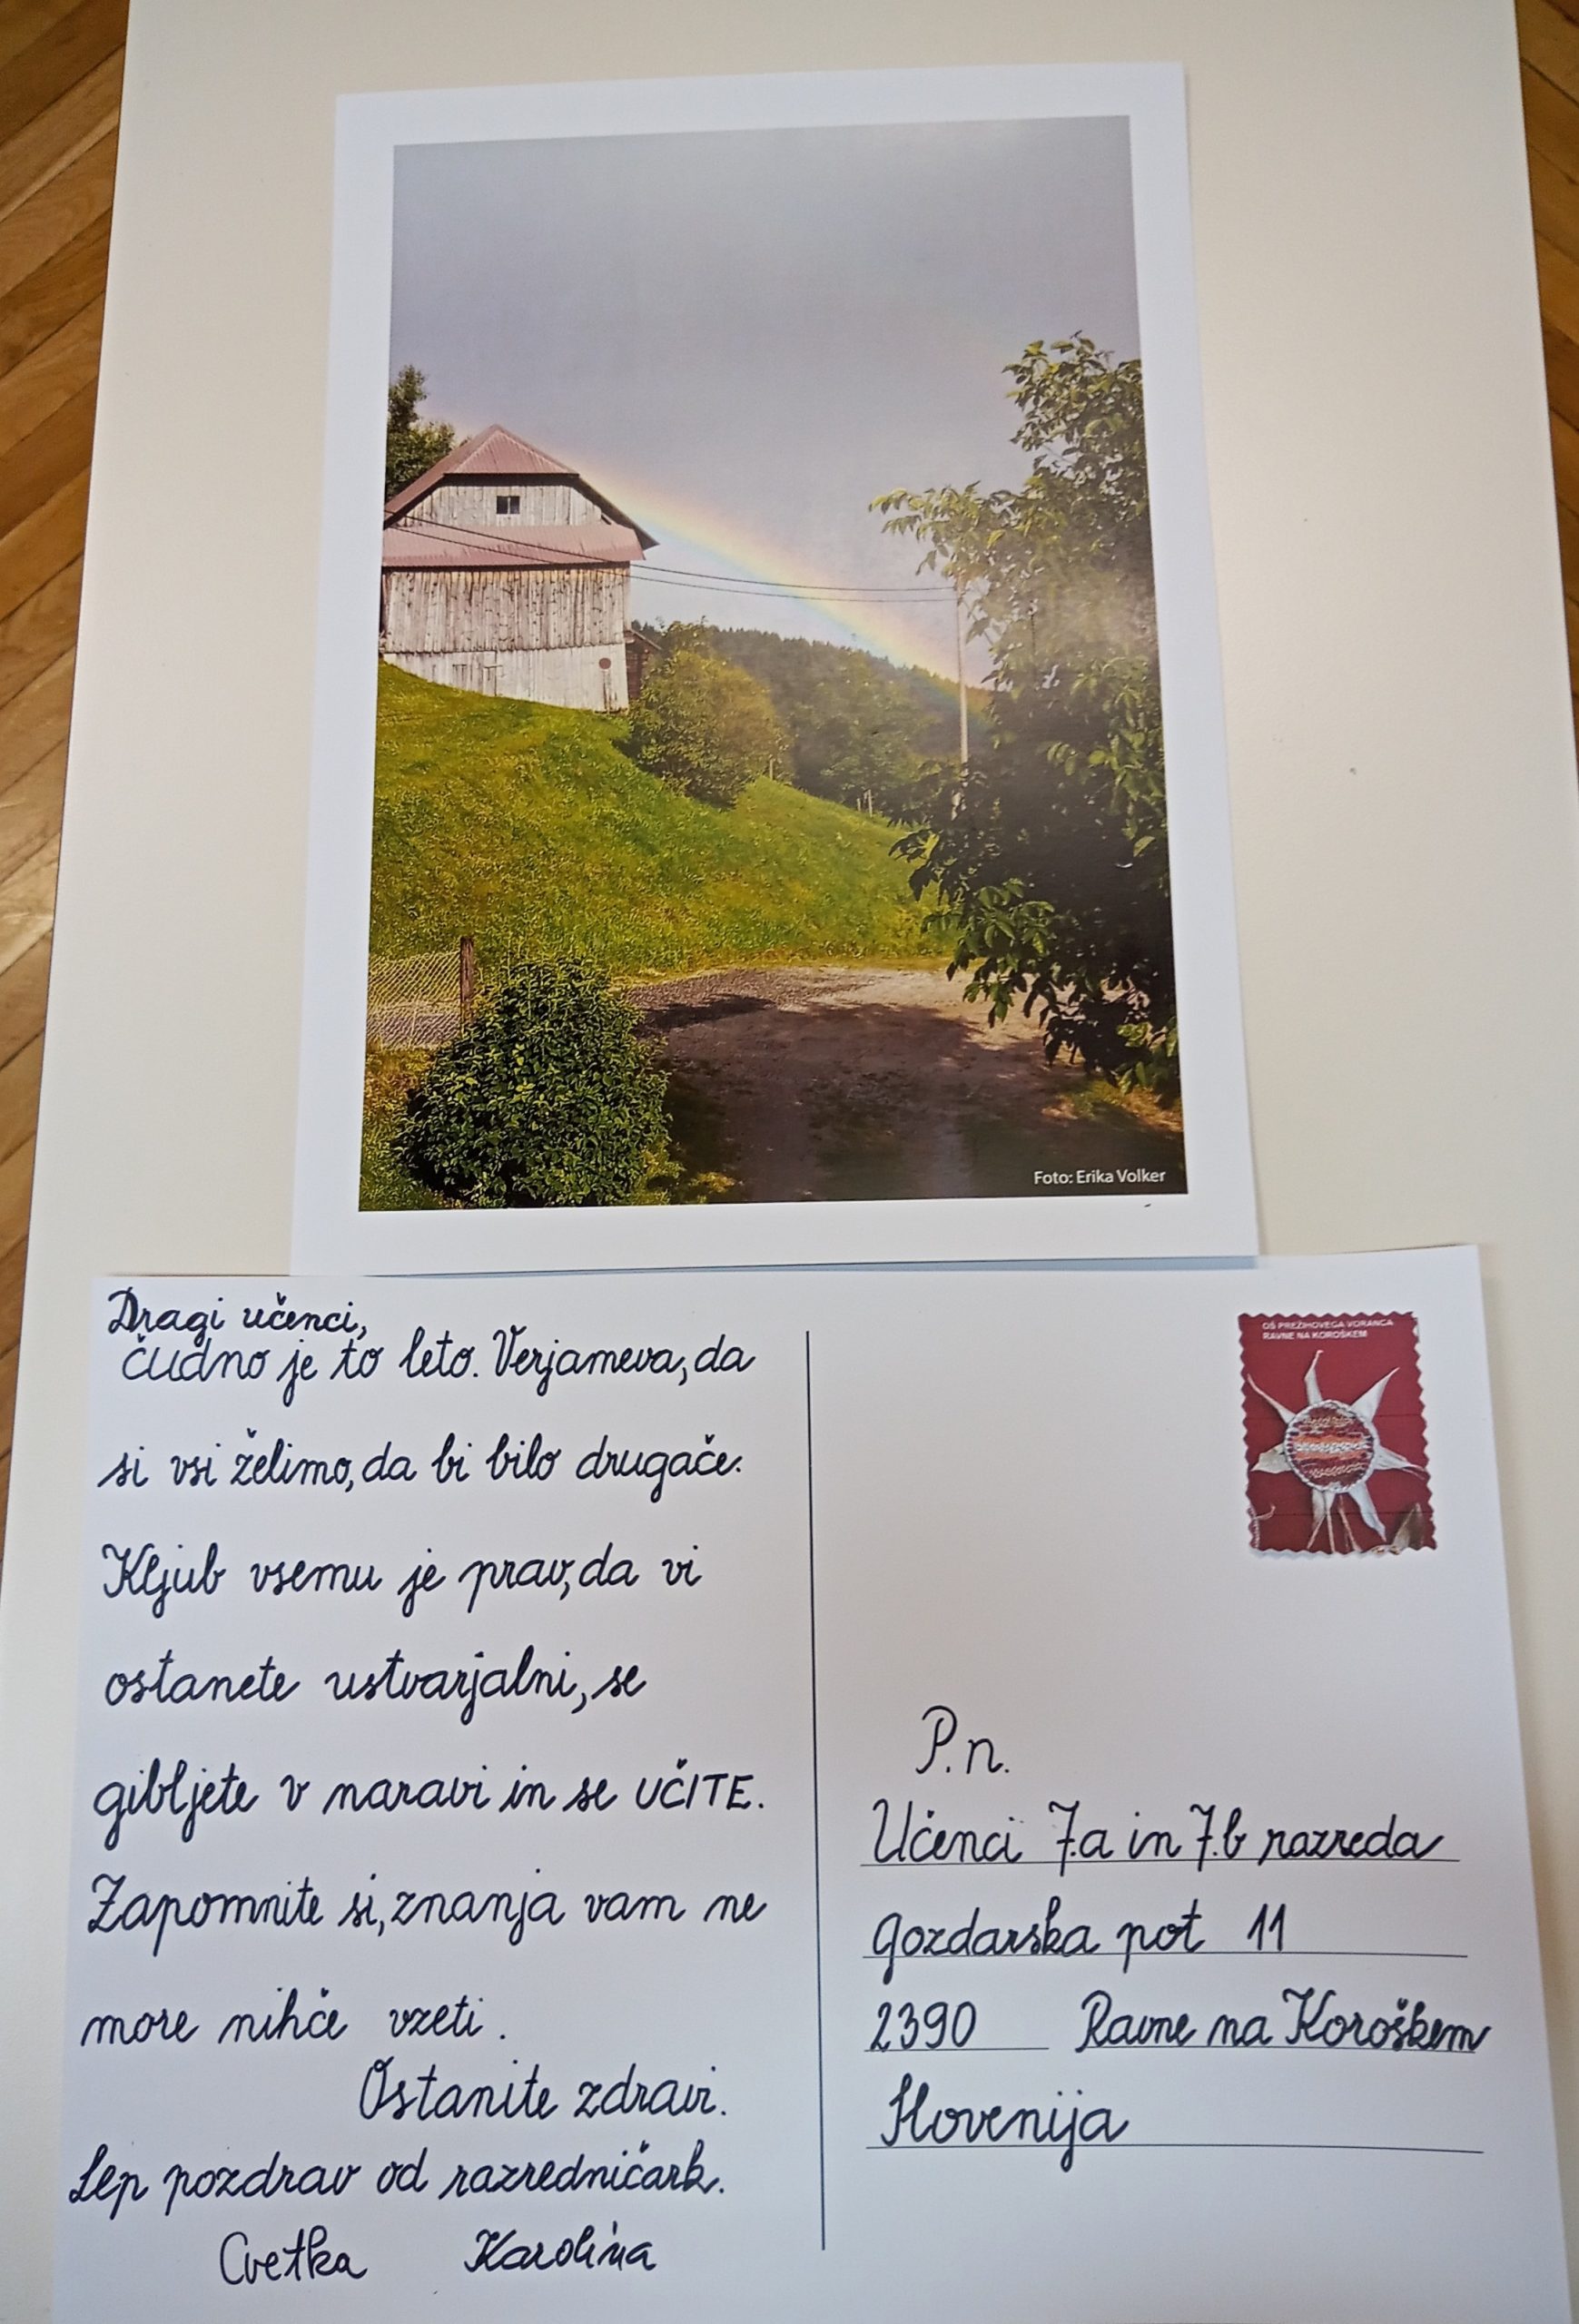 Foto: Erika Volker
Dragi učenci,
čudno je to leto. Verjameva, da
si vsi želimo, da bi bilo drugače.
Kljub vsemu je prav, da vi
ostanete ustvarjalni, se
gibljete v naravi in se UČITE.
Zapomnite si, znanja vam ne
more nihče vzeti.
Ostanite zdravi.
Lep pozdrav od razredničark.
Cvetka Karolina
OŠ PREŽIHOVEGA VORANCA
RAVNE NA KOROŠKEM
P.n.
Učenci 7.a in 7.b razreda
Gozdarska pot 11
2390 Ravne na Koroškem
Slovenija